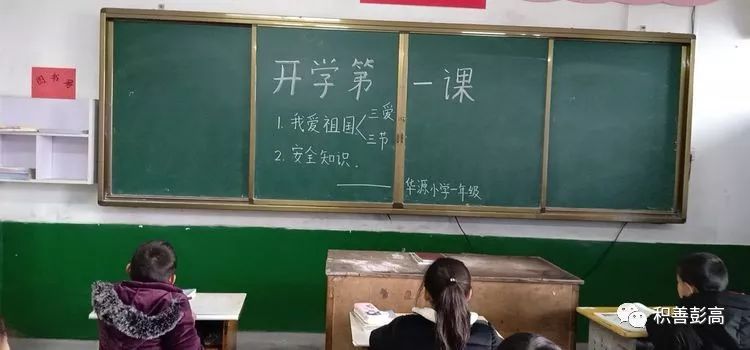 图书角
开学第一课
1. 我爱祖国 三爱
三节
2. 安全知识.
——华源小学一年级
积善彭高